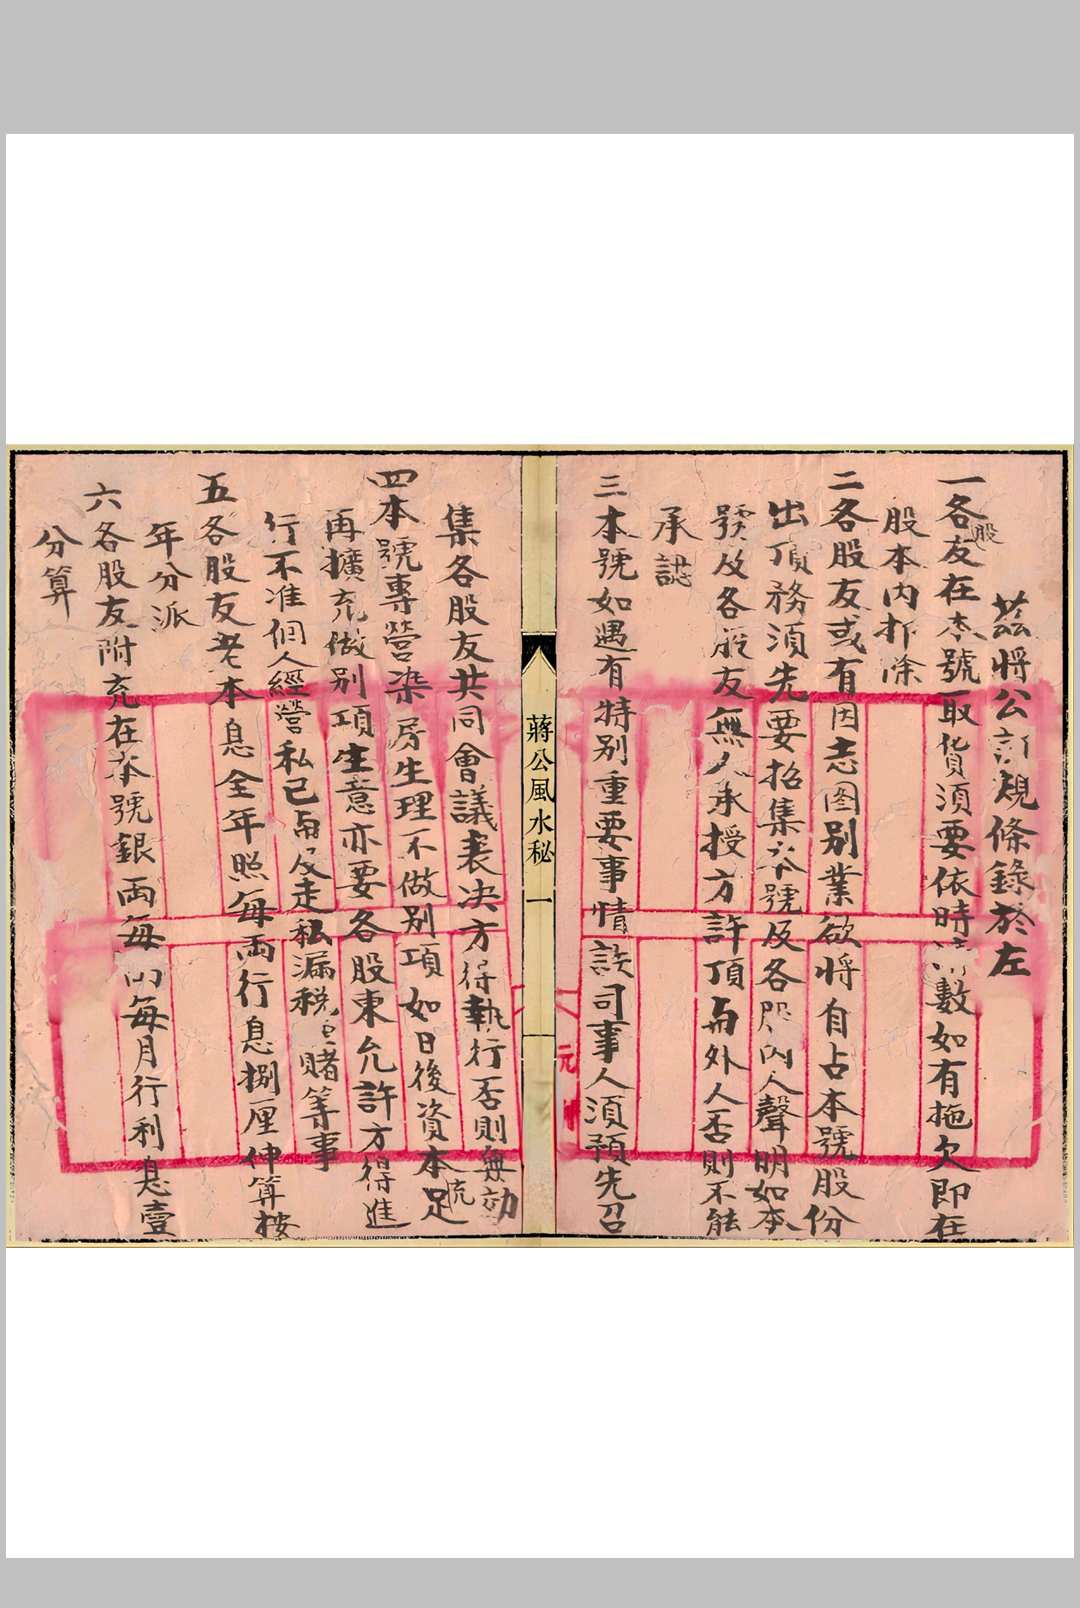 茲將公訂規條錄於左
一各股友在本號取貨須要依時 數如有拖欠即在
股本內扣除
二各股友或有因志图别業欲将自占本號股份
出頂務須先要招集本號及各 內人聲明如本
號及各股友無人承授方許頂与外人否則不能
承認
三本號如遇有特别重要事情該司事人須預先召
集各股友共同會議表决方得執行否則無効
四本號專營染房生理不做别項如日後資本充足
再擴充做别項生意亦要各股東允許方得進
行不准個人經營私己与及走私漏税 賭等事
五各股友老本息全年照每両行息捌厘伸算按
年分派
六各股友附充在本號銀両每 每月行利息壹
分算
蔣公風水秘 一
元